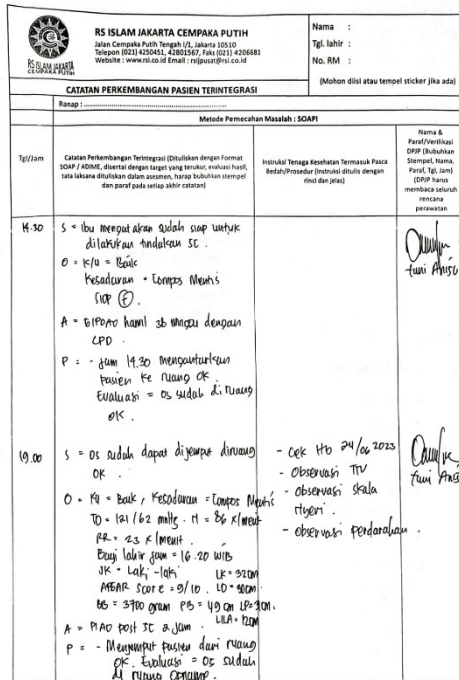 RS ISLAM JAKARTA
CEMPAKA PUTIH
RS ISLAM JAKARTA CEMPAKA PUTIH
Jalan Cempaka Putih Tengah I/1, Jakarta 10510
Telepon (021) 4250451, 42801567, Faks (021) 4206681
Website : www.rsi.co.id Email : rsijpusat@rsi.co.id
Nama :
Tgl. lahir :
No. RM :
(Mohon diisi atau tempel sticker jika ada)
CATATAN PERKEMBANGAN PASIEN TERINTEGRASI
Ranap :
Metode Pemecahan Masalah : SOAPI
Tgl/Jam
Catatan Perkembangan Terintegrasi (Dituliskan dengan Format
SOAP / ADIME, disertai dengan target yang terukur, evaluasi hasil,
tata laksana dituliskan dalam asesmen, harap bubuhkan stempel
dan paraf pada setiap akhir catatan)
Instruksi Tenaga Kesehatan Termasuk Pasca
Bedah/Prosedur (Instruksi ditulis dengan
rinci dan jelas)
Nama &
Paraf/Verifikasi
DPJP (Bubuhkan
Stempel, Nama,
Paraf, Tgl, Jam)
(DPJP harus
membaca seluruh
rencana
perawatan
14.30
S = Ibu mengatakan sudah siap untuk
dilakukan tindakan SC .
O = K/U = Baik
Kesadaran = Compos Mentis
A = G1P0A0 hamil 36 minggu dengan
CPD .
P = - Jam 14.30 mengantarkan
pasien ke ruang OK .
Evaluasi = OS sudah di ruang
OK .
19.00
S = OS sudah dapat dijemput diruang
OK .
O = KU = Baik , Kesadaran = Compos Mentis
TD = 121 /62 mmHg . N = 86 x/menit
RR = 23 x /menit .
Bayi lahir jam = 16.20 WIB
JK = Laki-laki LK = 32cm
APGAR Score = 9/10 .
BB = 3700 gram PB = 49 cm
A = P1A0 post SC 2 jam . LILA = 12cm
P = - Menjemput pasien dari ruang
OK. Evaluasi = OS sudah
di ruang
- Cek Hb 24/06 2023
- Observasi TTV
- Observasi skala
Nyeri .
- Observasi perdarahan .